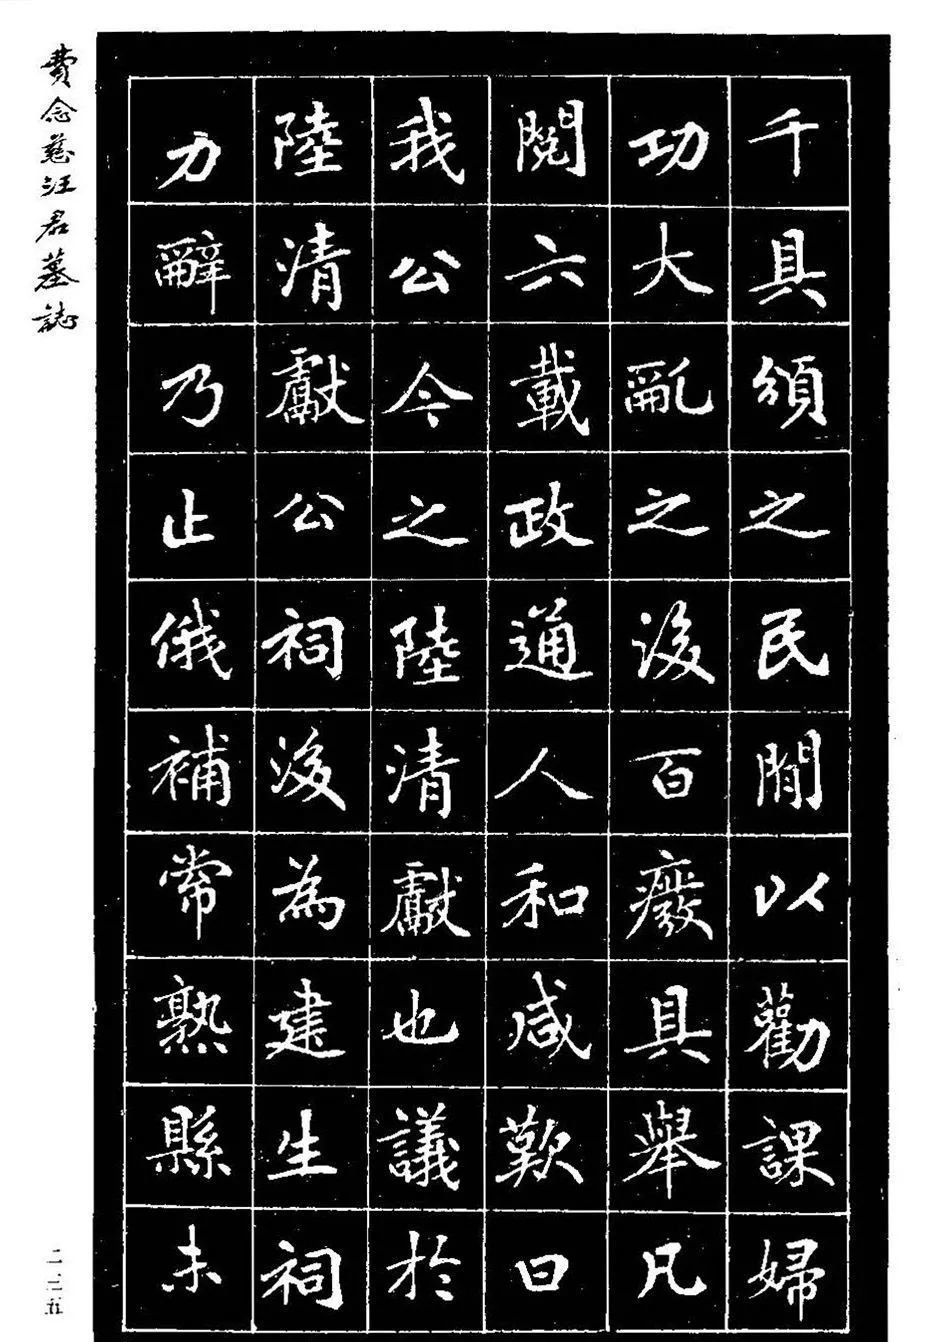 千具頒之民間以勸課婦
功大亂之後百廢具舉凡
閱六載政通人和咸歎曰
我公今之陸清獻也議於
陸清獻公祠後為建生祠
力辭乃止俄補常熟縣未
費念慈汪君墓誌
二三五